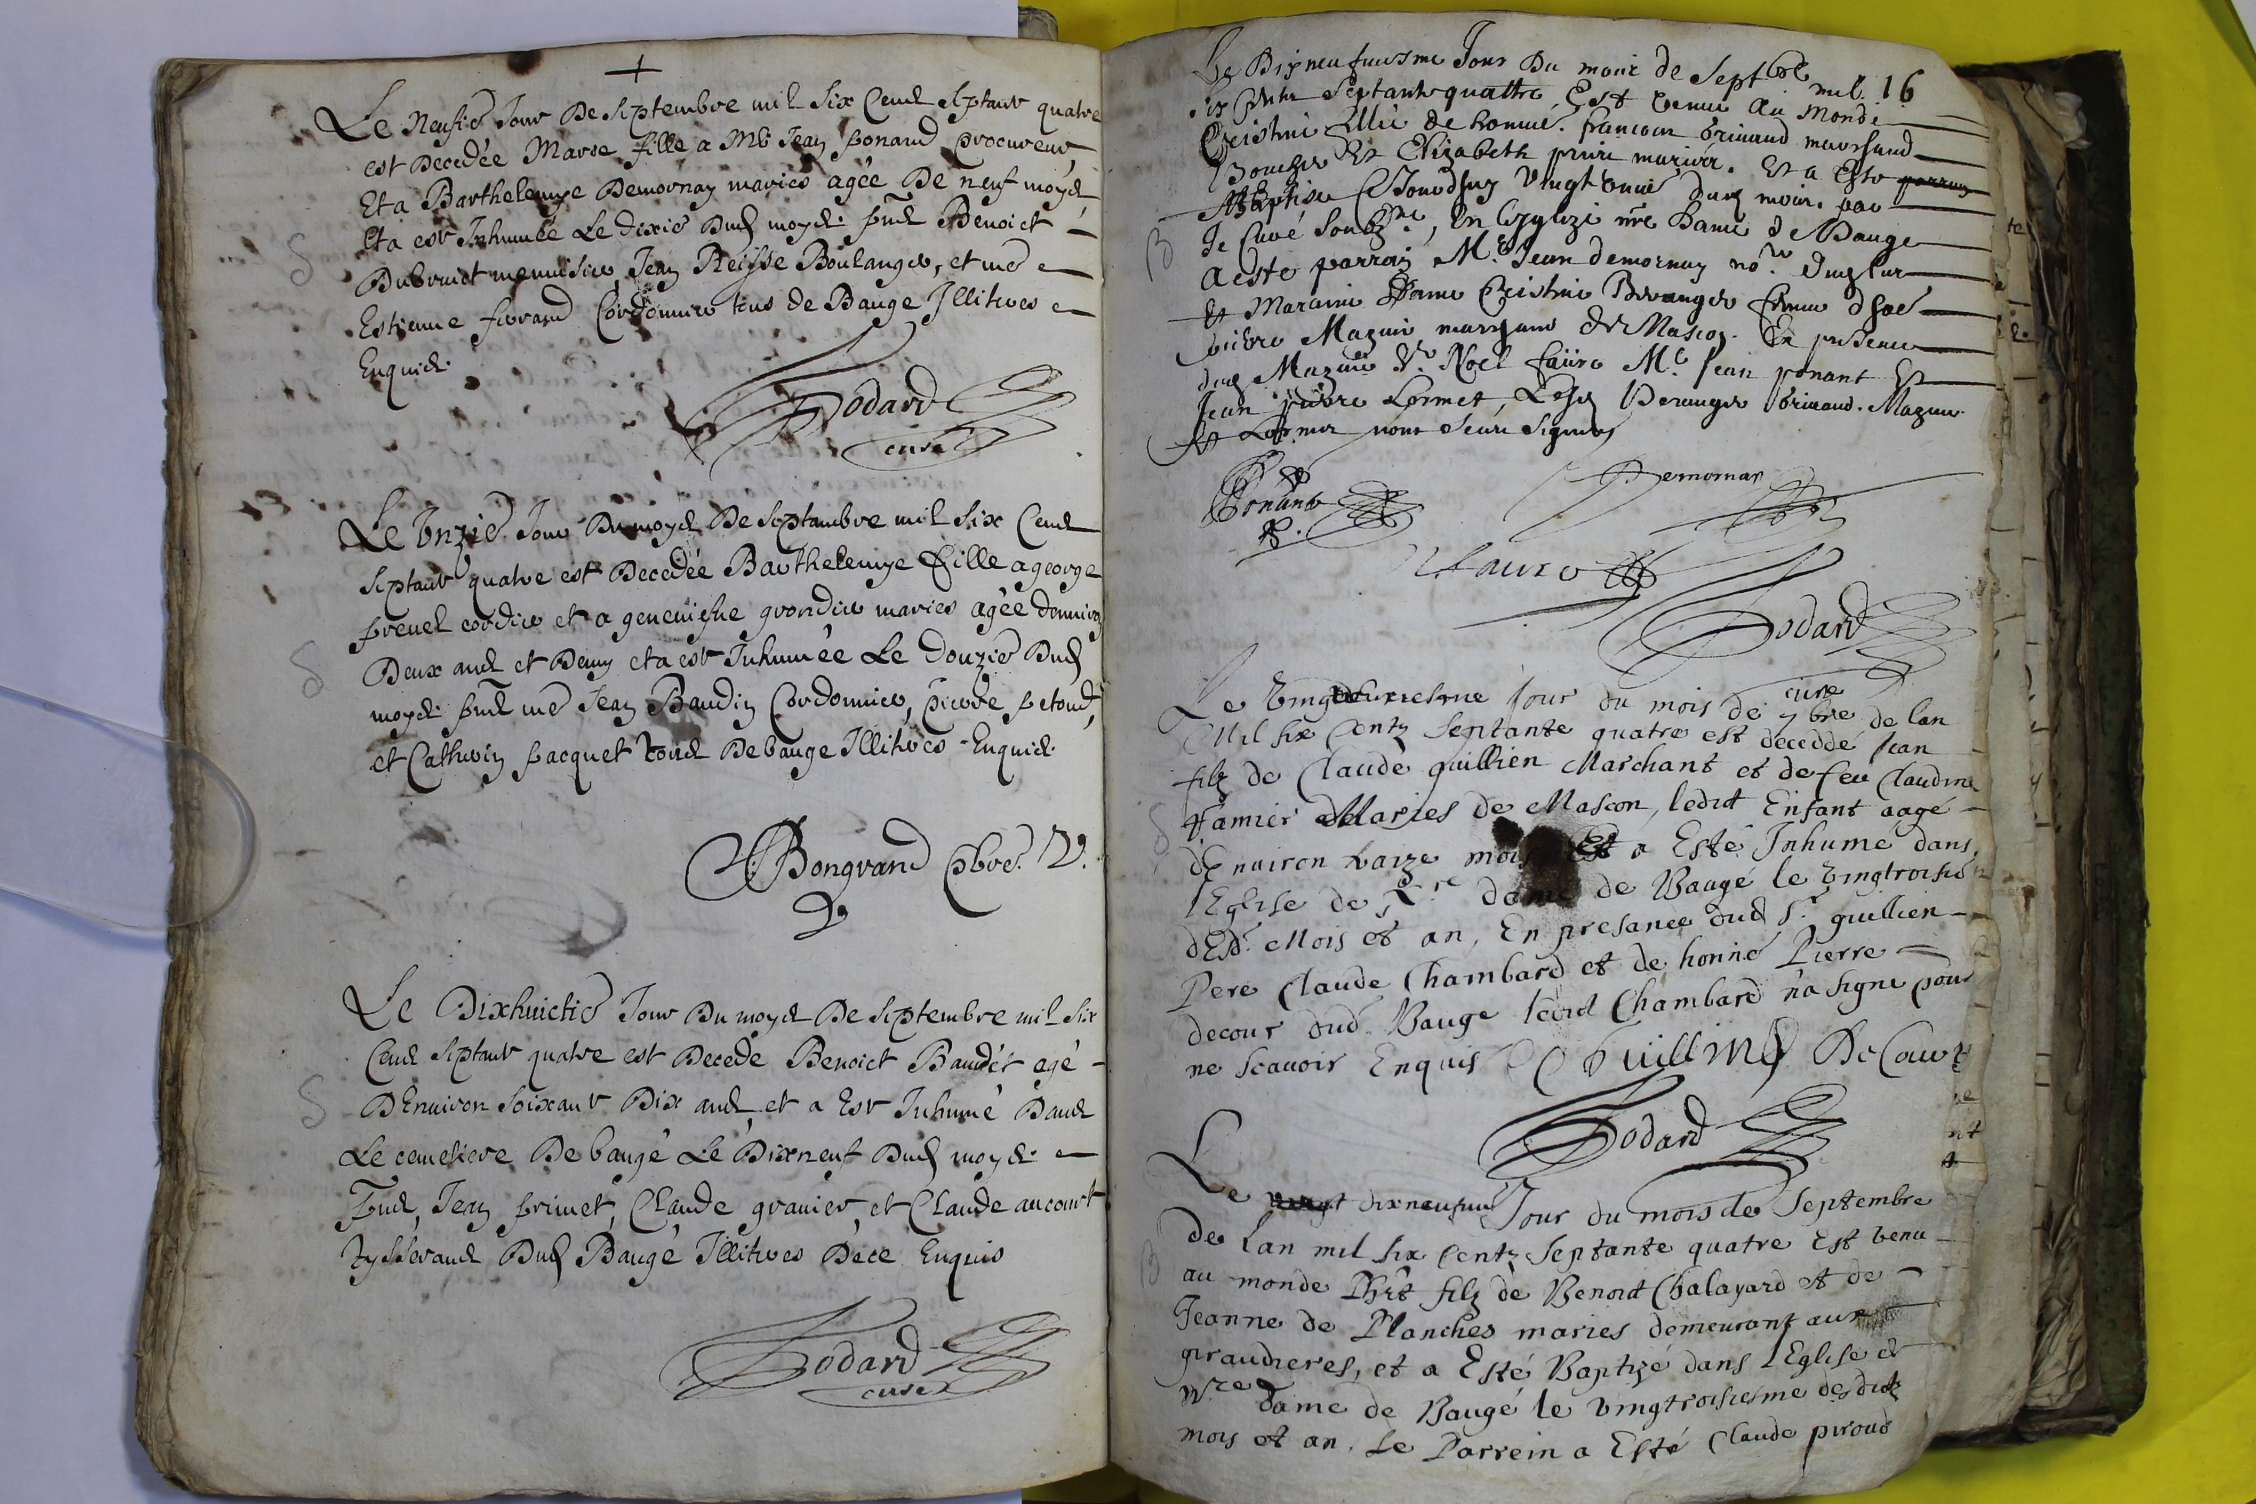 Le Neufie Jour De Septembre mil Six Cend Septant quatre
est Decedée Marie fille a Me Jean ponard procureur,
Et a Barthelemye Demornay maries agée De neuf moys
Et a est Inhumée Le dixie Dud moys. pnd Benoict
Dubruict menuisier, Jean Reisse Boulanger, et me
Estienne ferrand Cordonnier tous de Bauge Illitires
Enquis.
Bodard
curé
Le Unzie Jour Du moys De Septambre mil Six Cend
Septant quatre est Decedée Barthelemye fille a george
prevel cordier et a geneviefve grondier maries agée denviron
Deux and et Demy et a est Inhumée Le Douzie Dud
moys pnd me Jean Baudin Cordonnier, pierre petoud,
et Catherin pacquet tous De bauge Illitires Enquis.
Bongrand pbre. V.
Le Dixhuictie Jour Du moys De Septembre mil Six
Cend Septant quatre est Decede Benoict Baudet agé
D'Environ Soixant Dix and et a Est Inhumé Dand
Le cemetiere De baugé Le Dixneuf Dud moys
Pnd, Jean primet, Claude granier, et Claude aucourt
tysserand Dud Baugé Illitires De ce Enquis
Bodard
curé
16
Le Dixneufviesme Jour Du mois de Septbre mil
Six Cents Septante quattre, Est venue Au Monde
Cristine fillie de honneste francois brinaud marchand
Boucher Et Elizabeth mariés. Et a Este
Baptisé Cejourdhuy Vingt dud mois. par
Je Curé Soubzne, En leglize nre Dame de Bauge
a este parrain Mr Jean demornay nore dud lieu
Et Maraine Dame Cristine Beranger femme d
pierre Mazuir marchand de Mascon. En presence
dud Mazuir Sr Noel faure Me Jean ponant Et
Jean pierre Lormet, Beranger brinaud. Mazuir
Et Lormet nont sceu signer
Ponant
Demornay
Faure
Bodard
curé
Le Vingdeuxiesme Jour du mois de 7bre de lan
Mil six Centz Septante quatre est deceddé Jean
filz de Claude guillien Marchant et de feu Claudine
Famier Maries de Mascon, ledit Enfant aagé
dEnuiron traize mois Et a Esté Inhumé dans
l'Eglise de Nre dame de Baugé le Vingtroisie
desd. Mois et an, En presance dud Sr guillien
Pere Claude Chambard et de honne Pierre
decour dud. Bauge ledit Chambard n'a signe pour
ne Scavoir Enquis Guillin DeCour
Bodard
Le dixneufvie Jour du mois de Septembre
De lan mil six Centz Septante quatre Est venu
au monde Phit filz de Benoit Chalayard et de
Jeanne de Planches maries demeurant aux
giraudieres, et a Esté Baptizé dans l'Eglise de
Nre Dame de Baugé le Vingtroisiesme desditz
mois et an. Le Parrein a Esté Claude piroud